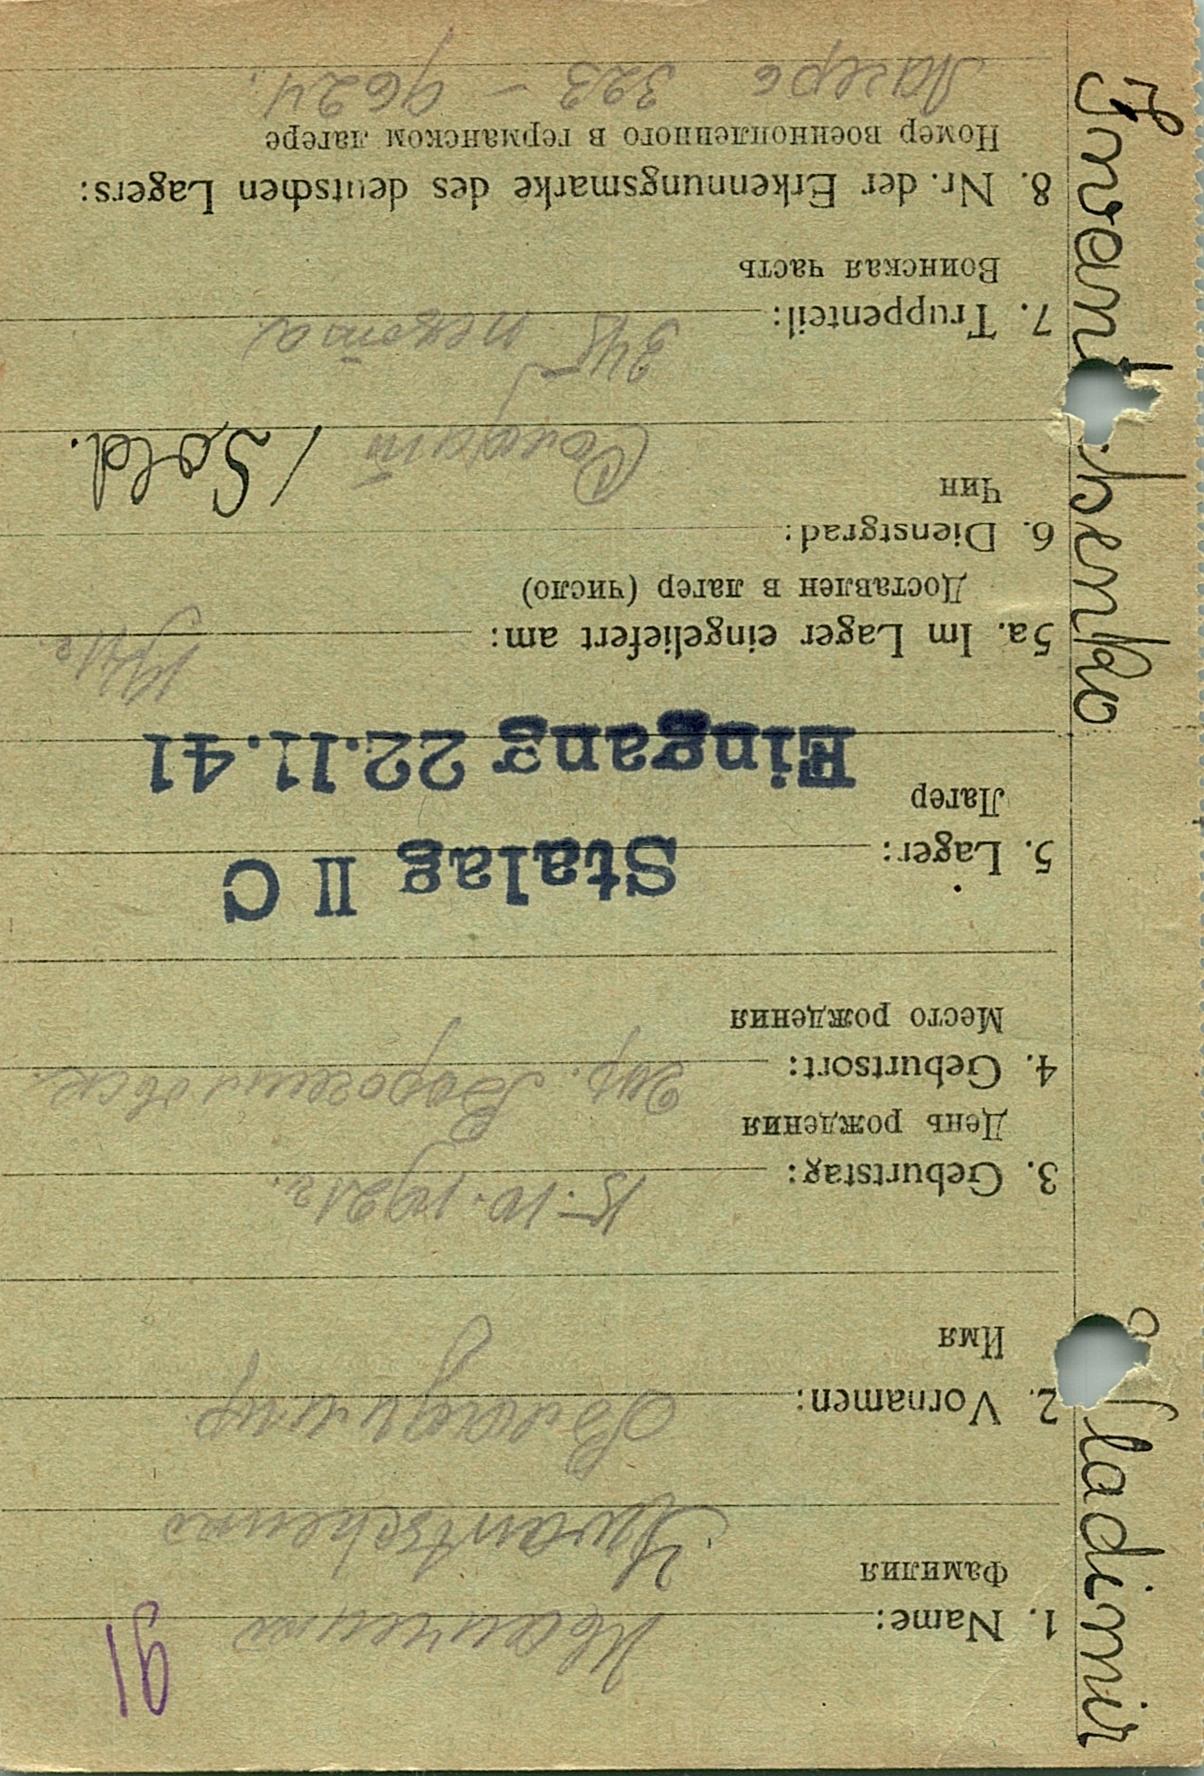 91
1. Name: Иванченко
Фамилия
Iwantschenko
2. Vornamen: Владимир
Имя
3. Geburtstag: 15-10.1921г.
День рождения
4. Geburtsort: гор. Ворошиловск.
Место рождения
5. Lager: Stalag II C
Лагер
Eingang 22.11.41
5a. Im Lager eingeliefert am:
Доставлен в лагер (число)
6. Dienstgrad:
Чин
Солдат / Sold.
7. Truppenteil: 345 пехота
Воинская часть
8. Nr. der Erkennungsmarke des deutschen Lagers:
Номер военнопленного в германском лагере
Лагерь 323 – 9624.
Iwantschenko
Vladimir